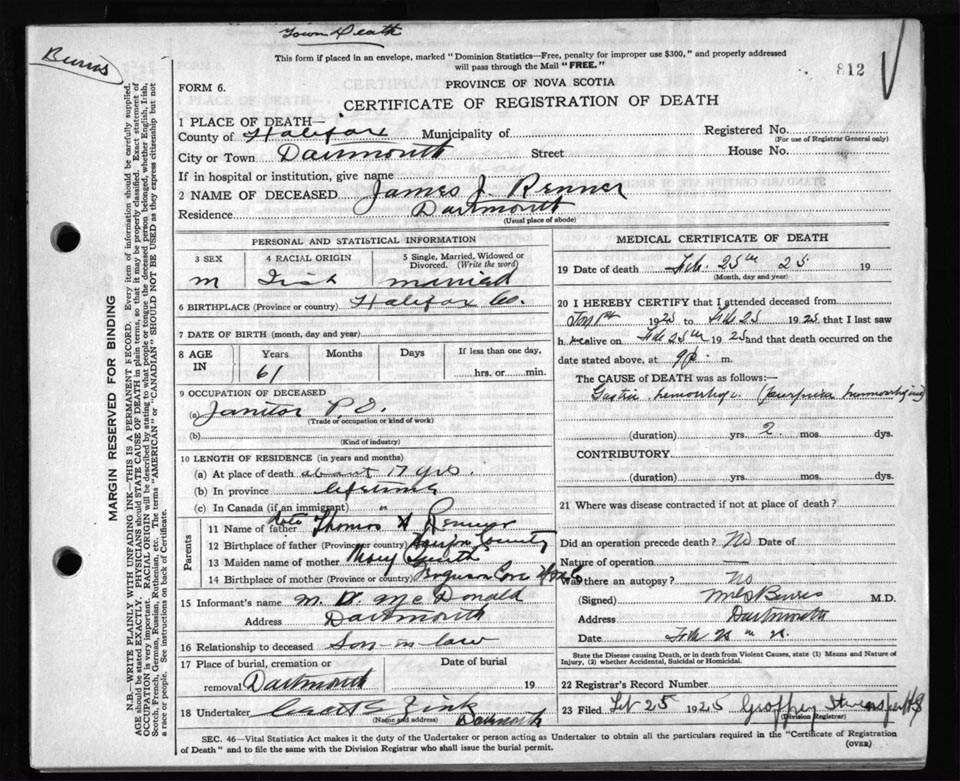 Town Death
Burris
This form if placed in an envelope, marked "Dominion Statistics—Free, penalty for improper use $300," and properly addressed
will pass through the Mail "FREE."
812
FORM 6.
PROVINCE OF NOVA SCOTIA
CERTIFICATE OF REGISTRATION OF DEATH
1 PLACE OF DEATH—
County of Halifax Municipality of Registered No.
(For use of Registrar General only)
City or Town Dartmouth Street House No.
If in hospital or institution, give name
2 NAME OF DECEASED James J. Renner
Residence Dartmouth
(Usual place of abode)
MARGIN RESERVED FOR BINDING
N.B.—WRITE PLAINLY WITH UNFADING INK—THIS IS A PERMANENT RECORD. Every item of information should be carefully supplied.
AGE should be stated EXACTLY. PHYSICIANS should STATE CAUSE OF DEATH in plain terms, so that it may be properly classified. Exact statement of
OCCUPATION is very important. RACIAL ORIGIN will be described by stating to what people or tongue the deceased person belonged, whether English, Irish,
Scotch, French, German, Russian, Ruthenian, etc. The terms "AMERICAN" or "CANADIAN" SHOULD NOT BE USED as they express citizenship but not
a race or people. See instructions on back of Certificate.
PERSONAL AND STATISTICAL INFORMATION
3 SEX 4 RACIAL ORIGIN 5 Single, Married, Widowed or
Divorced. (Write the word)
M Irish married
6 BIRTHPLACE (Province or country) Halifax Co.
7 DATE OF BIRTH (month, day and year)
8 AGE
IN
Years Months Days If less than one day,
61 hrs. or min.
9 OCCUPATION OF DECEASED
(a) Janitor P.O.
(Trade or occupation or kind of work)
(b)
(Kind of industry)
10 LENGTH OF RESIDENCE (in years and months)
(a) At place of death about 17 yrs.
(b) In province lifetime
(c) In Canada (if an immigrant) "
Parents
11 Name of father Thomas Renner
12 Birthplace of father (Province or country) County
13 Maiden name of mother Mary Smith
14 Birthplace of mother (Province or country) Ferguson Cove
15 Informant's name M. D. McDonald
Address Dartmouth
16 Relationship to deceased Son in law
17 Place of burial, cremation or Date of burial
removal Dartmouth 19
18 Undertaker Zink
(Name and address) Dartmouth
MEDICAL CERTIFICATE OF DEATH
19 Date of death Feb. 25th 25 19
(Month, day and year)
20 I HEREBY CERTIFY that I attended deceased from
1925 to Feb 25 1925 that I last saw
h alive on Feb 25th 1925 and that death occurred on the
date stated above, at 9 p. m.
The CAUSE of DEATH was as follows:—
Gastric hemorrhage
(duration) yrs. 2 mos. dys.
CONTRIBUTORY.
(duration) yrs. mos. dys.
21 Where was disease contracted if not at place of death?
Did an operation precede death? No Date of
Nature of operation —
Was there an autopsy? No
(Signed) Burris M.D.
Address Dartmouth
Date Feb
State the Disease causing Death, or in death from Violent Causes, state (1) Means and Nature of
Injury, (2) whether Accidental, Suicidal or Homicidal.
22 Registrar's Record Number
23 Filed Feb 25 1925 Geoffrey Stevens
(Division Registrar)
SEC. 46—Vital Statistics Act makes it the duty of the Undertaker or person acting as Undertaker to obtain all the particulars required in the "Certificate of Registration
of Death" and to file the same with the Division Registrar who shall issue the burial permit.
(OVER)